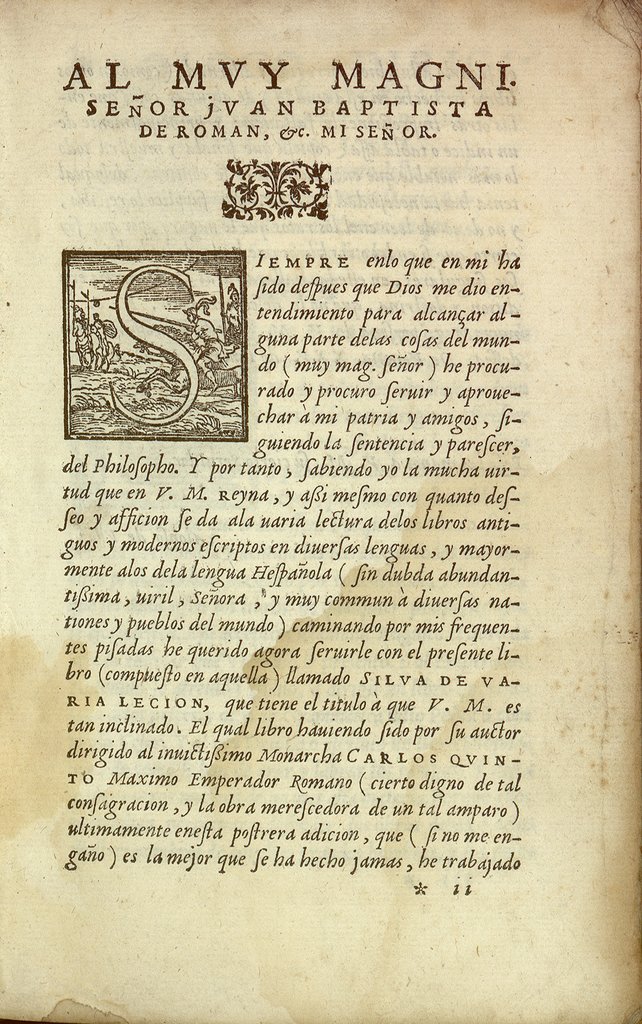 AL MVY MAGNI.
SEÑOR jVAN BAPTISTA
DE ROMAN, &c. MI SEÑOR.
SIEMPRE enlo que en mi ha
ſido deſpues que Dios me dio en-
tendimiento para alcançar al-
guna parte delas coſas del mun-
do ( muy mag. ſeñor ) he procu-
rado y procuro ſeruir y aproue-
char à mi patria y amigos, ſi-
guiendo la ſentencia y pareſcer,
del Philoſopho. Y por tanto, ſabiendo yo la mucha uir-
tud que en V. M. Reyna, y aßi meſmo con quanto deſ-
ſeo y afficion ſe da ala uaria lectura delos libros anti-
guos y modernos eſcriptos en diuerſas lenguas, y mayor-
mente alos dela lengua Heſpañola ( ſin dubda abundan-
tißima, uiril, Señora, y muy commun à diuerſas na-
tiones y pueblos del mundo ) caminando por mis frequen-
tes piſadas he querido agora ſeruirle con el preſente li-
bro (compueſto en aquella ) llamado SILVA DE VA-
RIA LECION, que tiene el titulo à que V. M. es
tan inclinado. El qual libro hauiendo ſido por ſu auctor
dirigido al inuictißimo Monarcha CARLOS QVIN-
TO Maximo Emperador Romano ( cierto digno de tal
conſagracion, y la obra mereſcedora de un tal amparo )
ultimamente eneſta poſtrera adicion, que ( ſi no me en-
gaño ) es la mejor que ſe ha hecho jamas, he trabajado
* ii